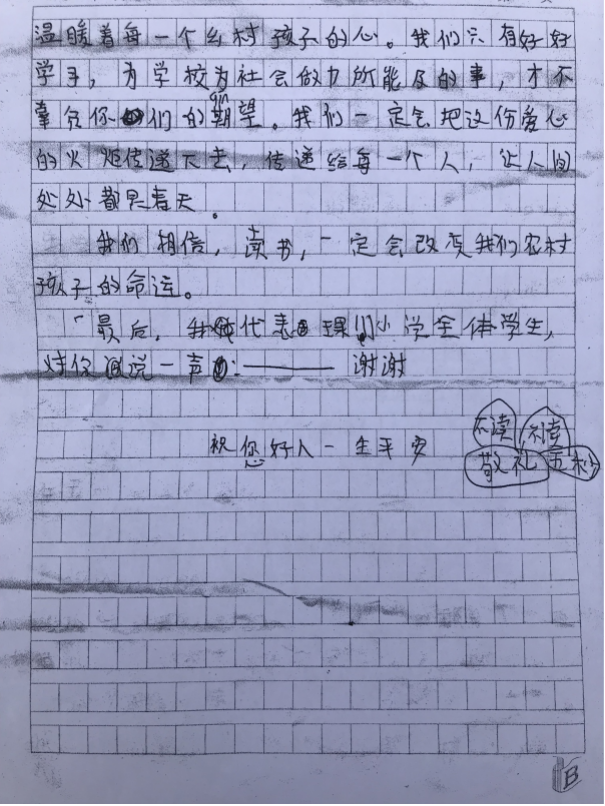 温暖着每一个乡村孩子的心。我们只有好好
学习，为学校为社会做力所能及的事，才不
辜负你们的期望。我们一定会把这份爱心
qīn
的火炬传递下去，传递给每一个人，让人间
处处都是春天。
我们相信，读书，一定会改变我们农村
孩子的命运。
最后，我代表理川小学全体学生，
对你说一声：——— 谢谢
祝您好人一生平安
不读 不读
敬礼 五秒
B